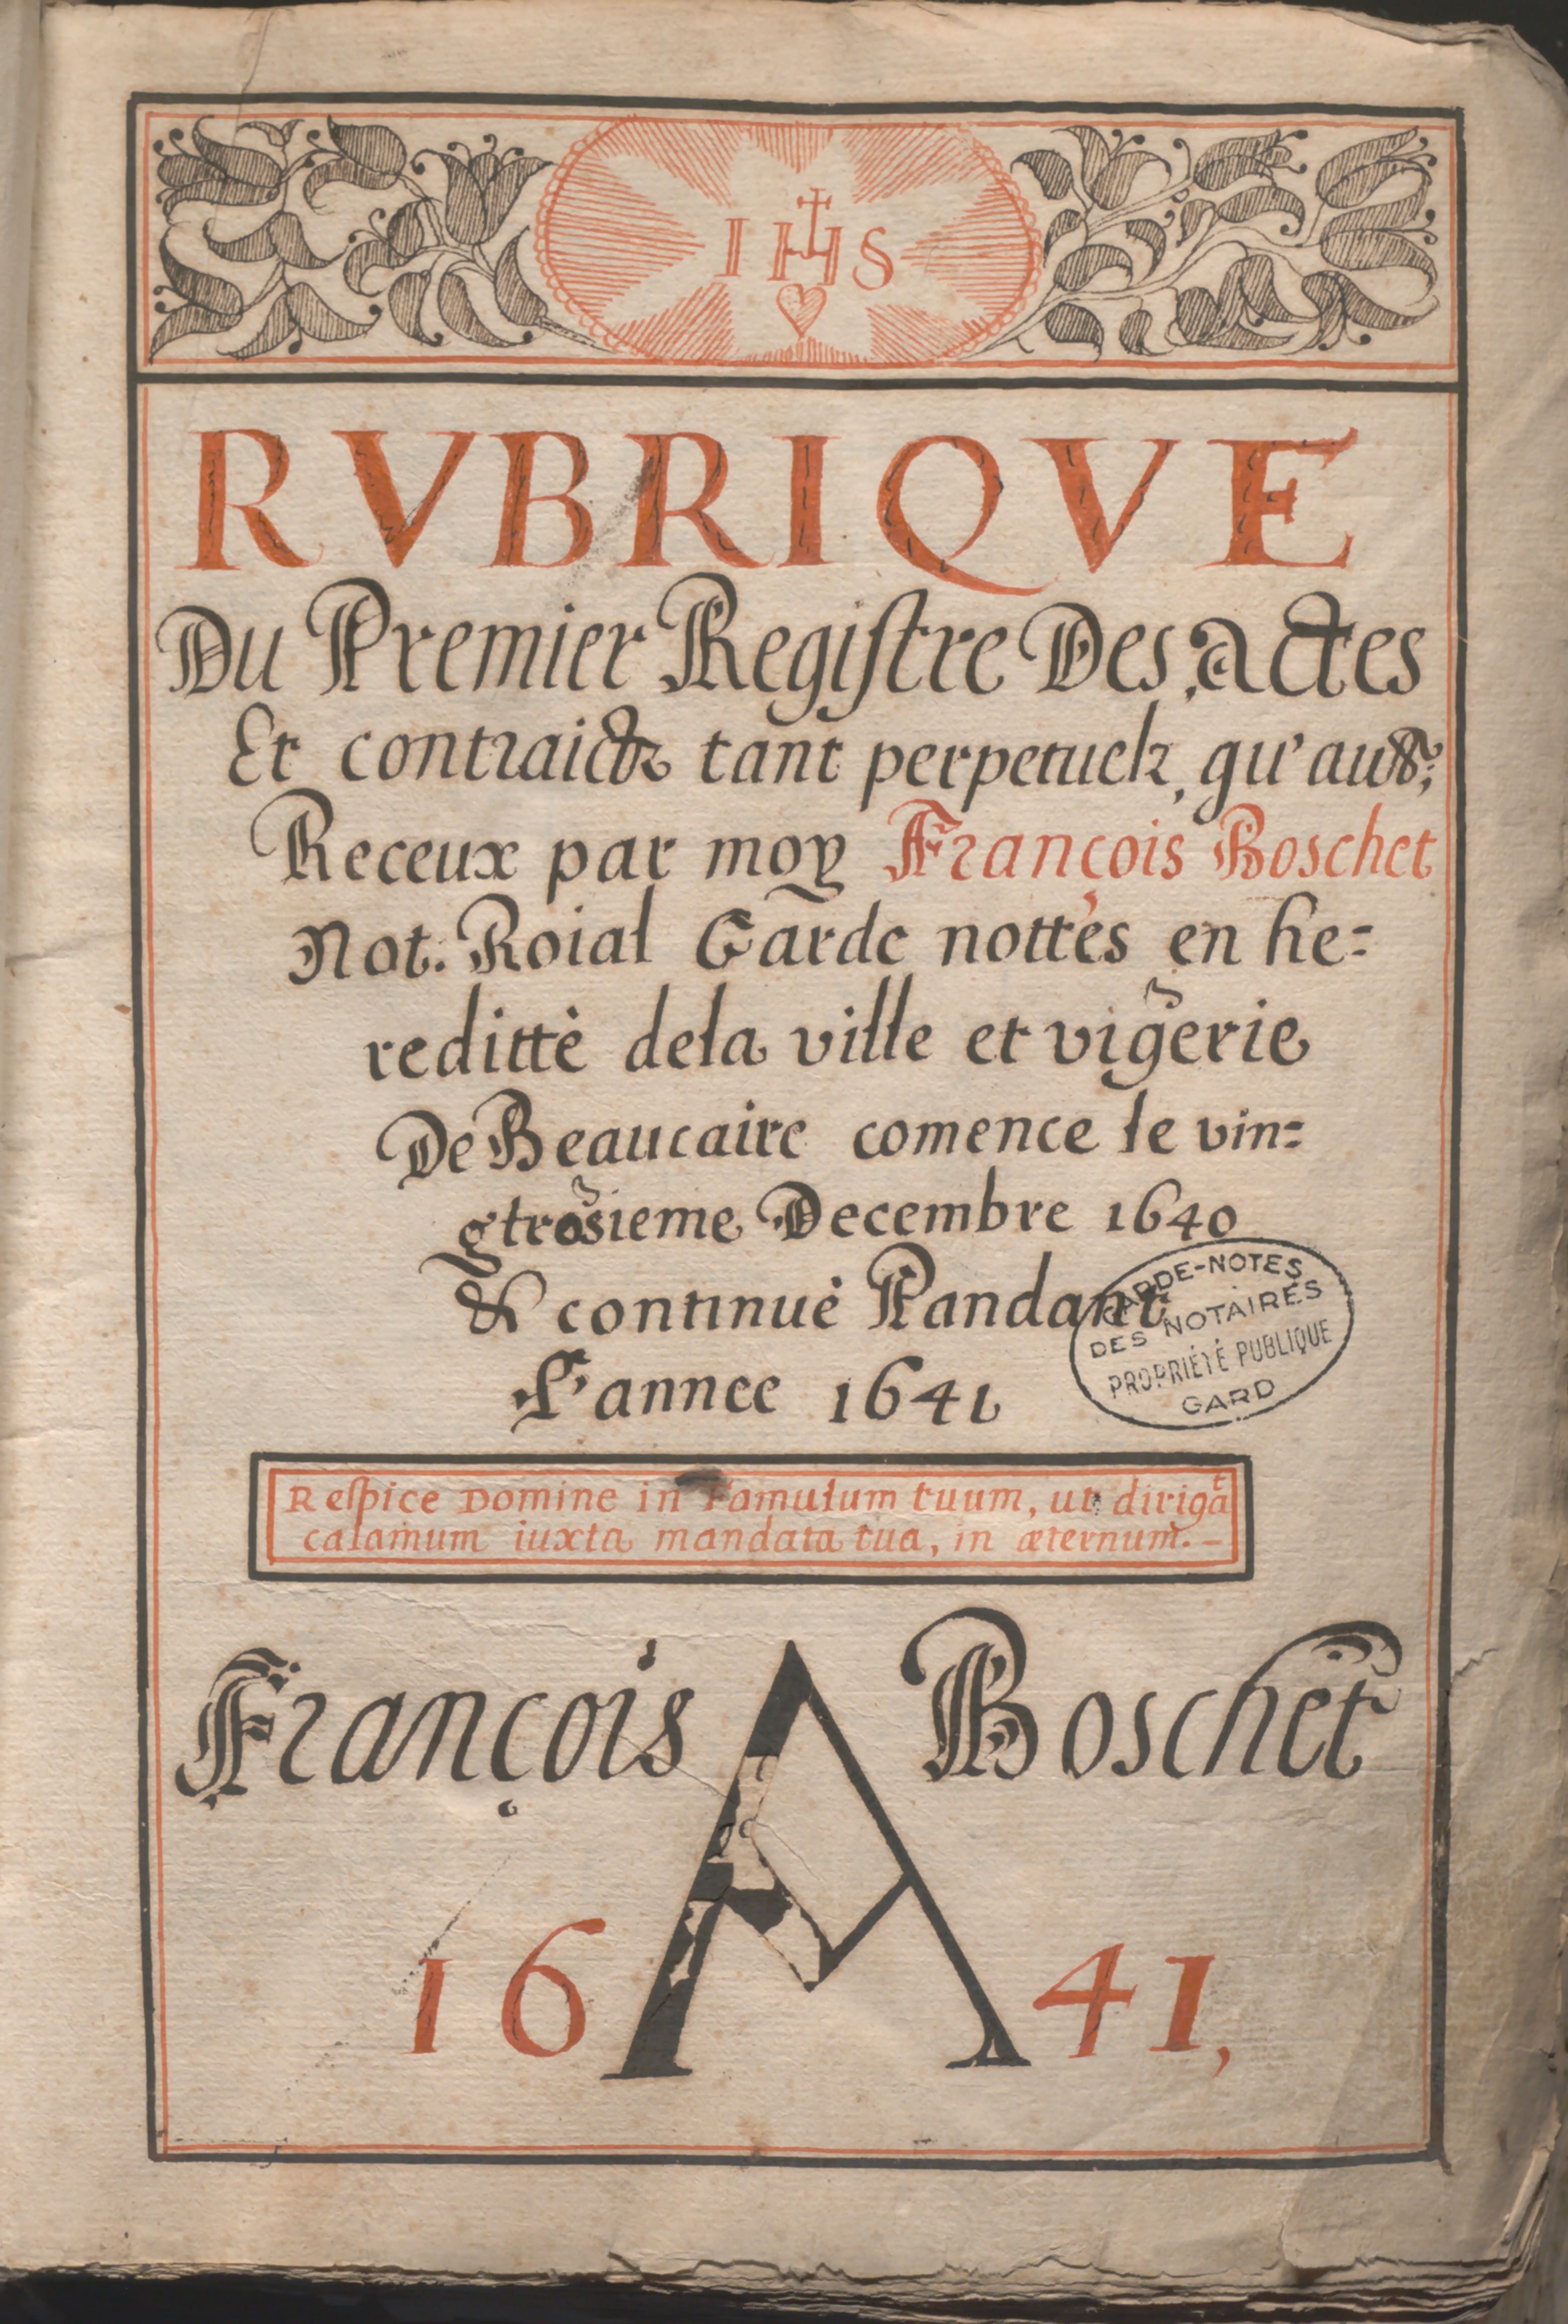 IHS
RVBRIQVE
Du Premier Regiſtre Des actes
Et contraictz tant perpetuelz, qu'au
Receux par moy François Boschet
Not. Roial Garde nottes en he=
redittè dela ville et vigerie
De Beaucaire comence le vin=
gtrosieme Decembre 1640
& continuè Pandant
L'annee 1641
GARDE-NOTES
DES NOTAIRES
PROPRIÉTÉ PUBLIQUE
GARD
Reſpice Domine in Famulum tuum, ut dirigat
calamum iuxta mandata tua, in æternum. -
François A Boschet
16 41,